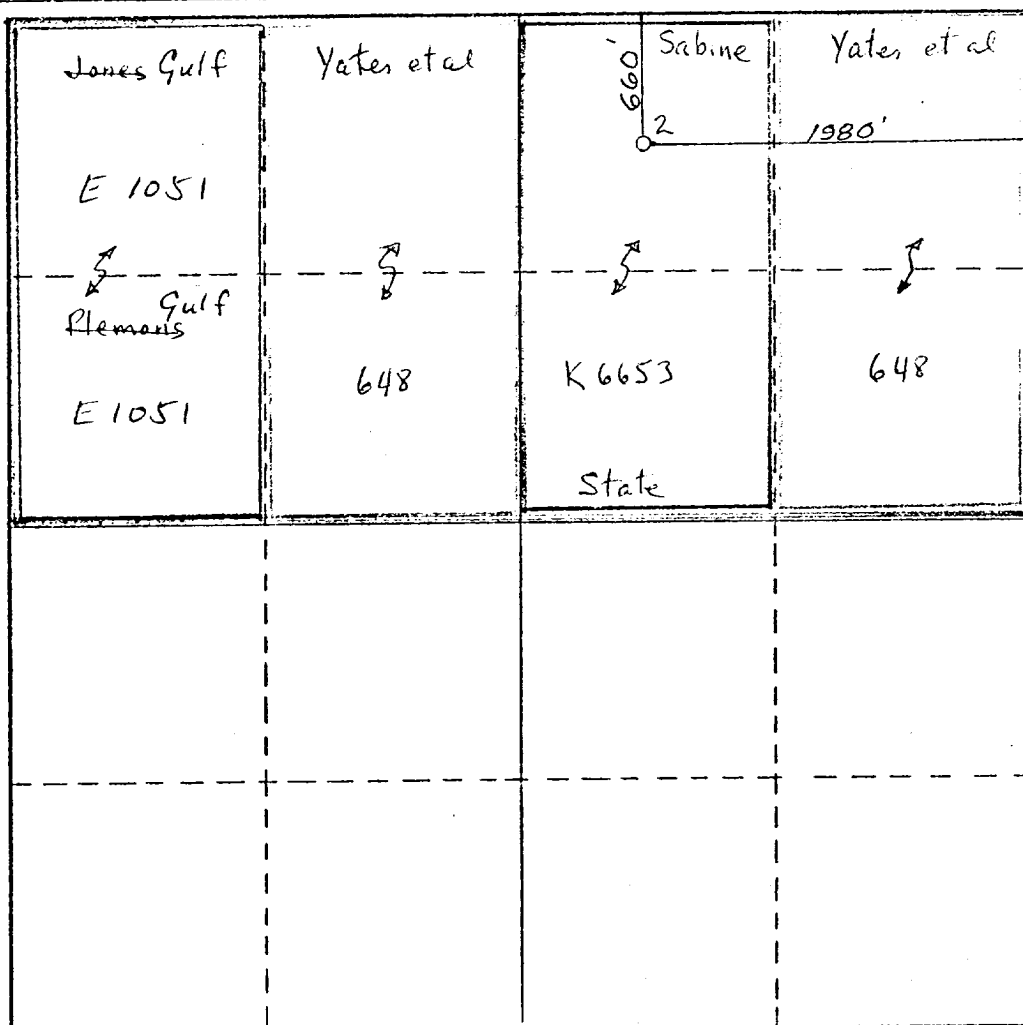 Jones Gulf
E 1051
Gulf
Plemons
E 1051
Yates et al
648
Sabine
660'
2
1980'
K 6653
State
Yates et al
648